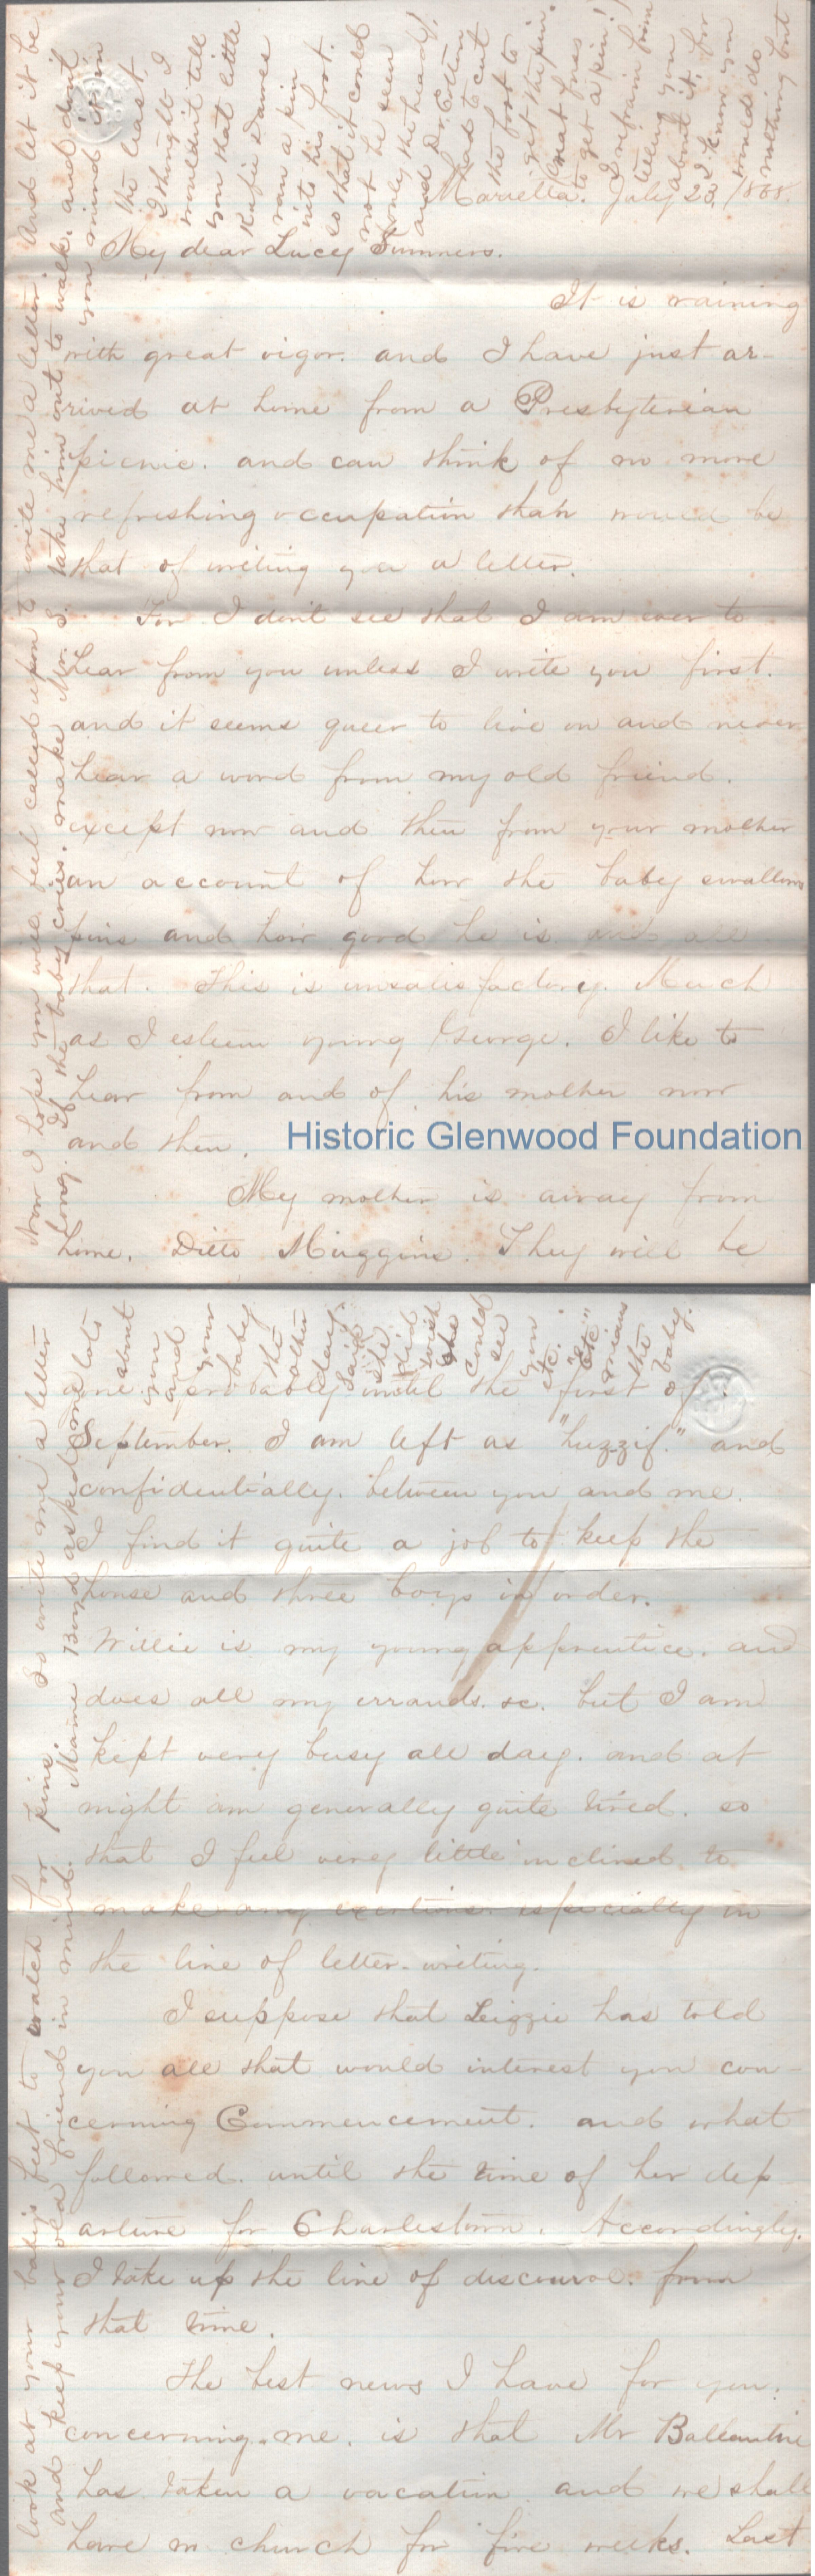 Marietta. July 23. 1868.
My dear Lucy Summers.
It is raining
with great vigor. and I have just ar-
rived at home from a Presbyterian
picnic. and can think of no more
refreshing occupation than would be
that of writing you a letter.
For I don't see that I am ever to
hear from you unless I write you first.
and it seems queer to live on and never
hear a word from my old friend.
except now and then from your mother
an account of how the baby swallows
pins and how good he is and all
that. This is unsatisfactory. Much
as I esteem young George. I like to
hear from and of his mother now
and then.
Historic Glenwood Foundation
My mother is away from
home. Ditto Muggins. They will be
Now I hope you will feel called upon to write me a letter. And let it be
long. If the baby cries. make Mr. S. take him out to walk. and don't
you mind it in
the least.
I thought I
wouldn't tell
you that little
Rufie Dawes
ran a pin
into his foot.
so that it could
not be seen
(only the head)!
and Dr. Cotton
had to cut
the foot to
get the pin.
Great fuss
to get a pin!
I refrain from
telling you
about it, for
I know you
would do
nothing but
look at your baby's feet to watch for pins. So write me a letter
and keep your old friend in mind. Mamie Boyd asked me lots
about
you
and
your
baby
the
other
day.
Said
she
did
wish
she
could
see
you
etc.
"etc"
means
the
baby.
gone probably until the first of
September. I am left as "huzzif." and
confidentially. between you and me.
I find it quite a job to keep the
house and three boys in order.
Willie is my young apprentice. and
does all my errands. &c. but I am
kept very busy all day. and at
night am generally quite tired. so
that I feel very little inclined to
make any exertions. especially in
the line of letter-writing.
I suppose that Lizzie has told
you all that would interest you con-
cerning Commencement. and what
followed. until the time of her dep
arture for Charlestown. Accordingly.
I take up the line of discourse. from
that time.
The best news I have for you.
concerning me. is that Mr Ballantine
has taken a vacation. and we shall
have no church for five weeks. Last